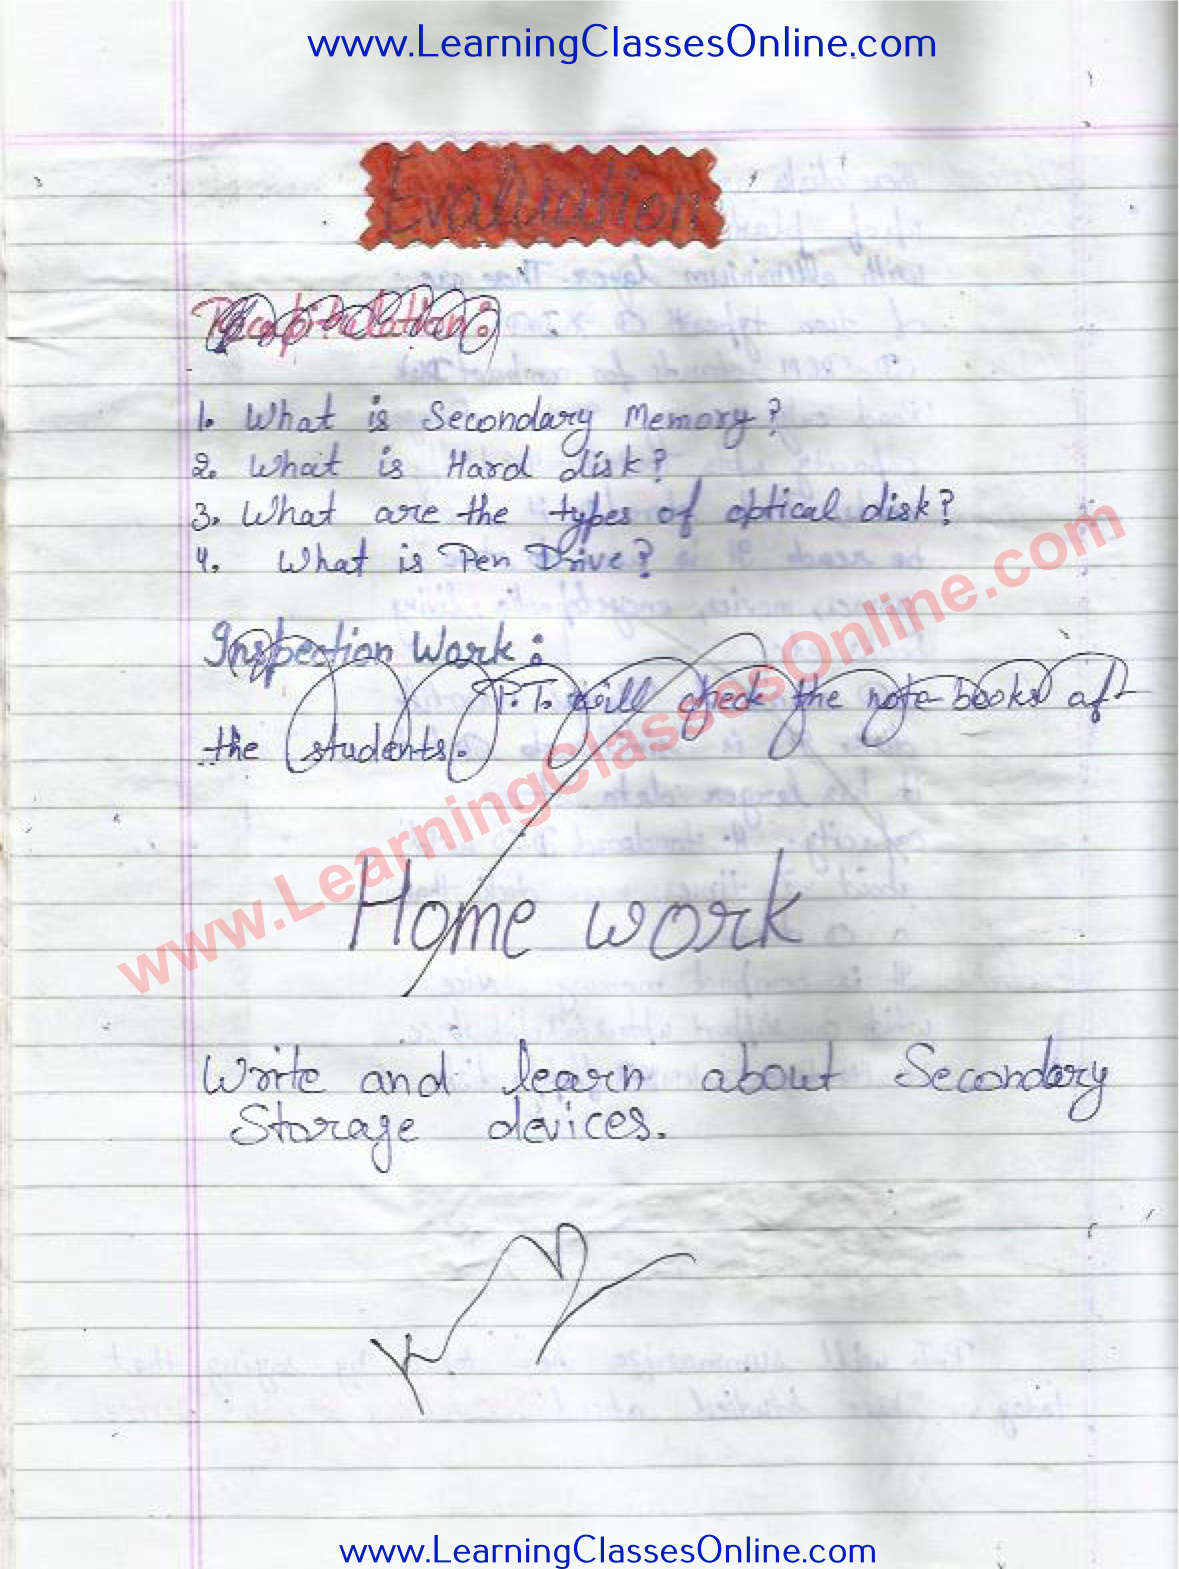 www.LearningClassesOnline.com
Evaluation
Recapitulation:
1. What is Secondary Memory?
2. What is Hard disk?
3. What are the types of optical disk?
4. What is Pen Drive?
Inspection Work:
P.T. will check the note-books of
the students.
www.LearningClassesOnline.com
Home work
Write and learn about Secondary
Storage devices.
www.LearningClassesOnline.com